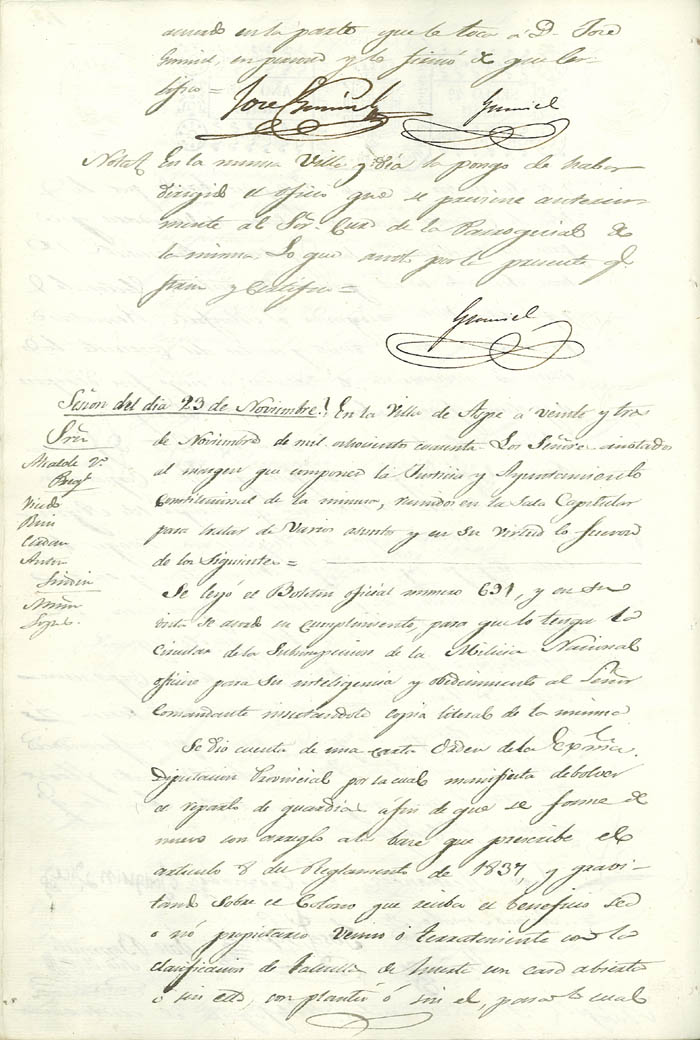 acuerdo en la parte que le toca á Dn. José
Gumiel, enterado y lo firmó de que cer-
tifico =
José Gumiel Gumiel
Nota En la misma Villa y dia lo pongo de haber
dirigido el oficio que se previene anterior-
mente al Sor. Cura de la Parroquial de
la misma. Lo que anoto por la presente q.
firmo y Certifico =
Gumiel
Sesion del dia 23 de Noviembre. En la Villa de Aspe á Veinte y tres
de Noviembre de mil ochociento cuarenta. Los Señores anotados
al margen que componen la Justicia y Ayuntamiento
Constitucional de la misma, reunidos en la Sala Capitular
para tratar de Varios asuntos y en su virtud lo fueron
de los Siguientes =
Sres.
Alcalde 2º
Vicedo
Cerdan
Anton
Sindico
Se leyó el Boletin oficial numero 691, y en su
vista se acordó su cumplimiento, para que lo tenga la
Circular de la Subinspeccion de la Milicia Nacional
oficiese para su inteligencia y obedecimiento al Señor
Comandante insertandole copia literal de la misma
Se dio cuenta de una carta Orden de la Exma.
Diputacion Provincial por la cual manifiesta debolver
el reparto de guardia, a fin de que se forme de
nuevo con arreglo a la base que prescribe el
articulo 8 del Reglamento de 1837, y gravi-
tando Sobre el Colono que reciba el beneficio sea
o nó propietario Vecino ó terrateniente con la
clasificacion de tahulla de huerta en caso abierto
ó sin esto, con plantío ó sin el, para lo cual